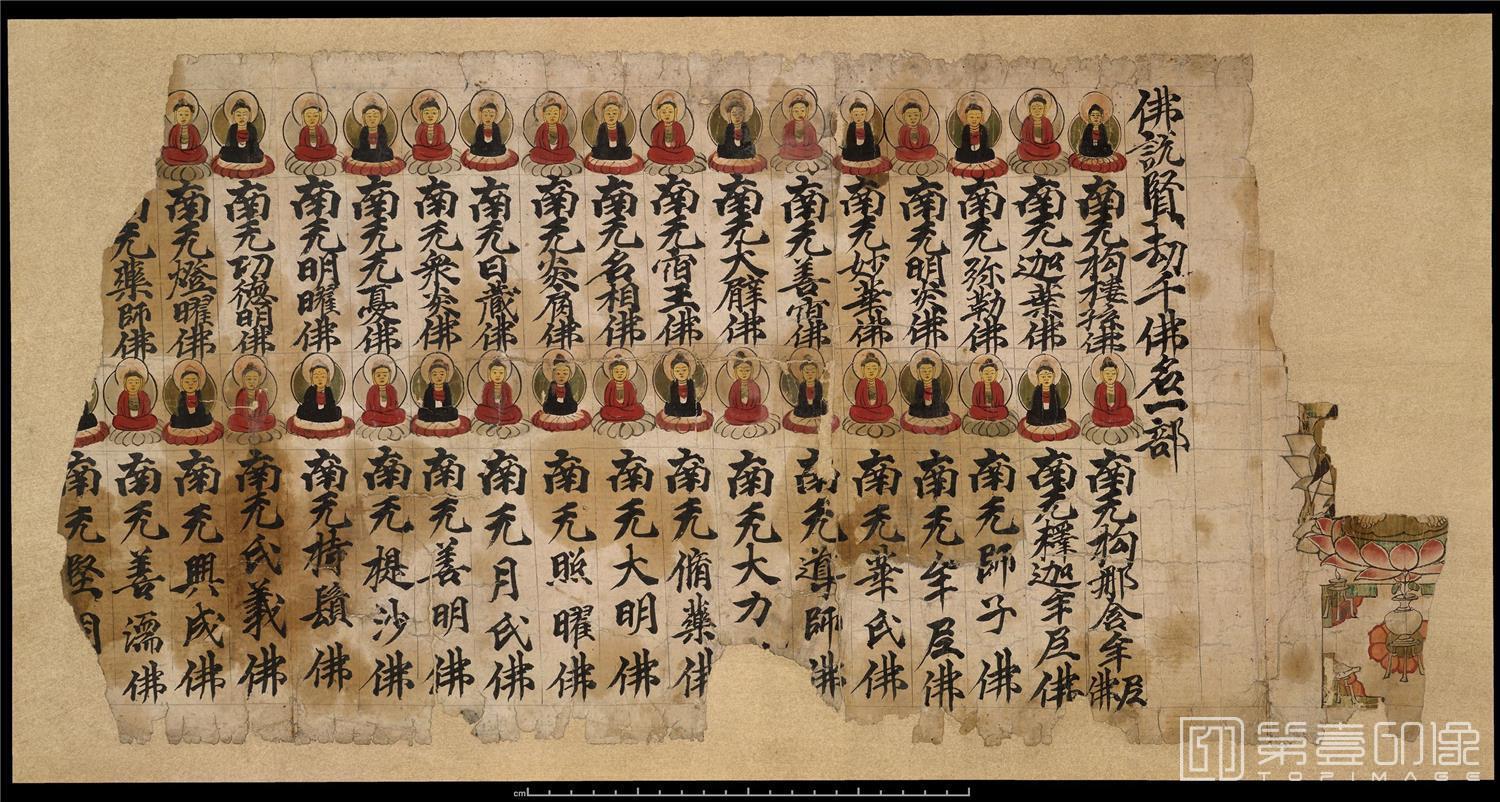 佛説賢劫千佛名一部
南无拘樓孫佛
南无拘那含牟尼佛
南无迦葉佛
南无釋迦牟尼佛
南无弥勒佛
南无師子佛
南无明炎佛
南无牟尼佛
南无妙華佛
南无華氏佛
南无善宿佛
南无導師佛
南无大臂佛
南无大力
南无宿王佛
南无脩藥佛
南无名相佛
南无大明佛
南无炎肩佛
南无照曜佛
南无日藏佛
南无月氏佛
南无衆炎佛
南无善明佛
南无无憂佛
南无提沙佛
南无明曜佛
南无持鬘佛
南无功德明佛
南无氏義佛
南无燈曜佛
南无興成佛
南无藥師佛
南无善濡佛
南无堅
cm
第壹印像
TOPIMAGE